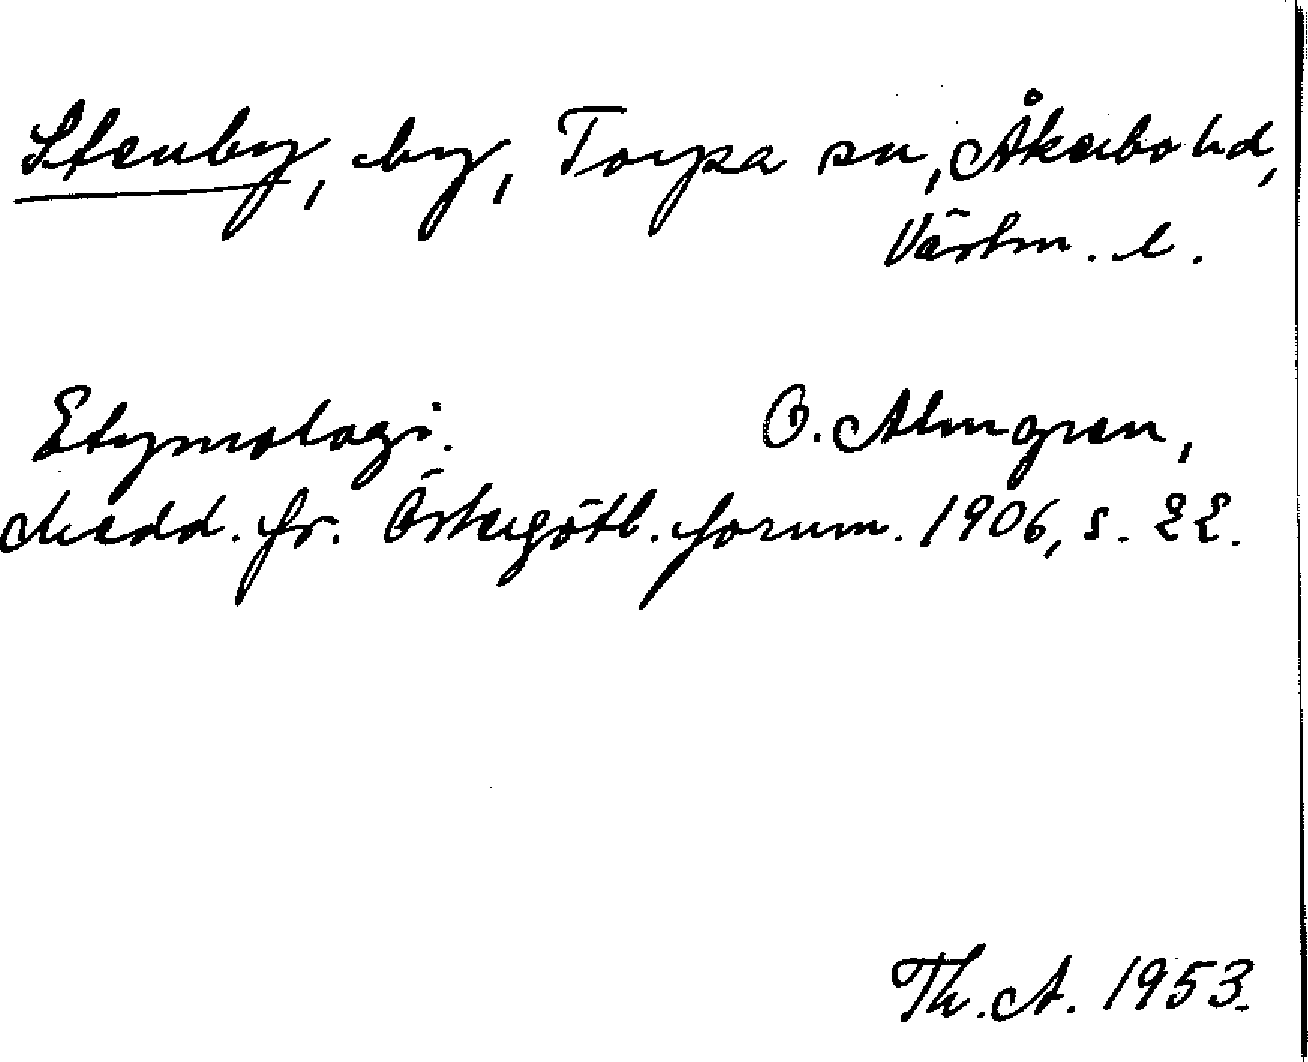 Stenby, by, Torpa sn, Åkerbo hd,
Västm. l.
Etymologi. O. Almgren,
Medd. fr. Östergötl. fornm. 1906, s. 22.
Th. A. 1953.